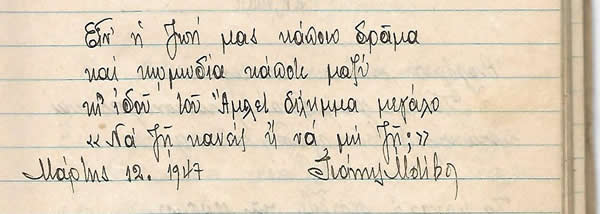 Εἶν' ἡ ζωή μας κάποιο δρᾶμα
καί κωμωδία κάποτε μαζύ
κι' ἰδού τοῦ Ἄμλετ δίλημμα μεγάλο
«Νά ζῇ κανείς ἤ νά μή ζῇ;»
Μάρτης 12. 1947 Γιάννης